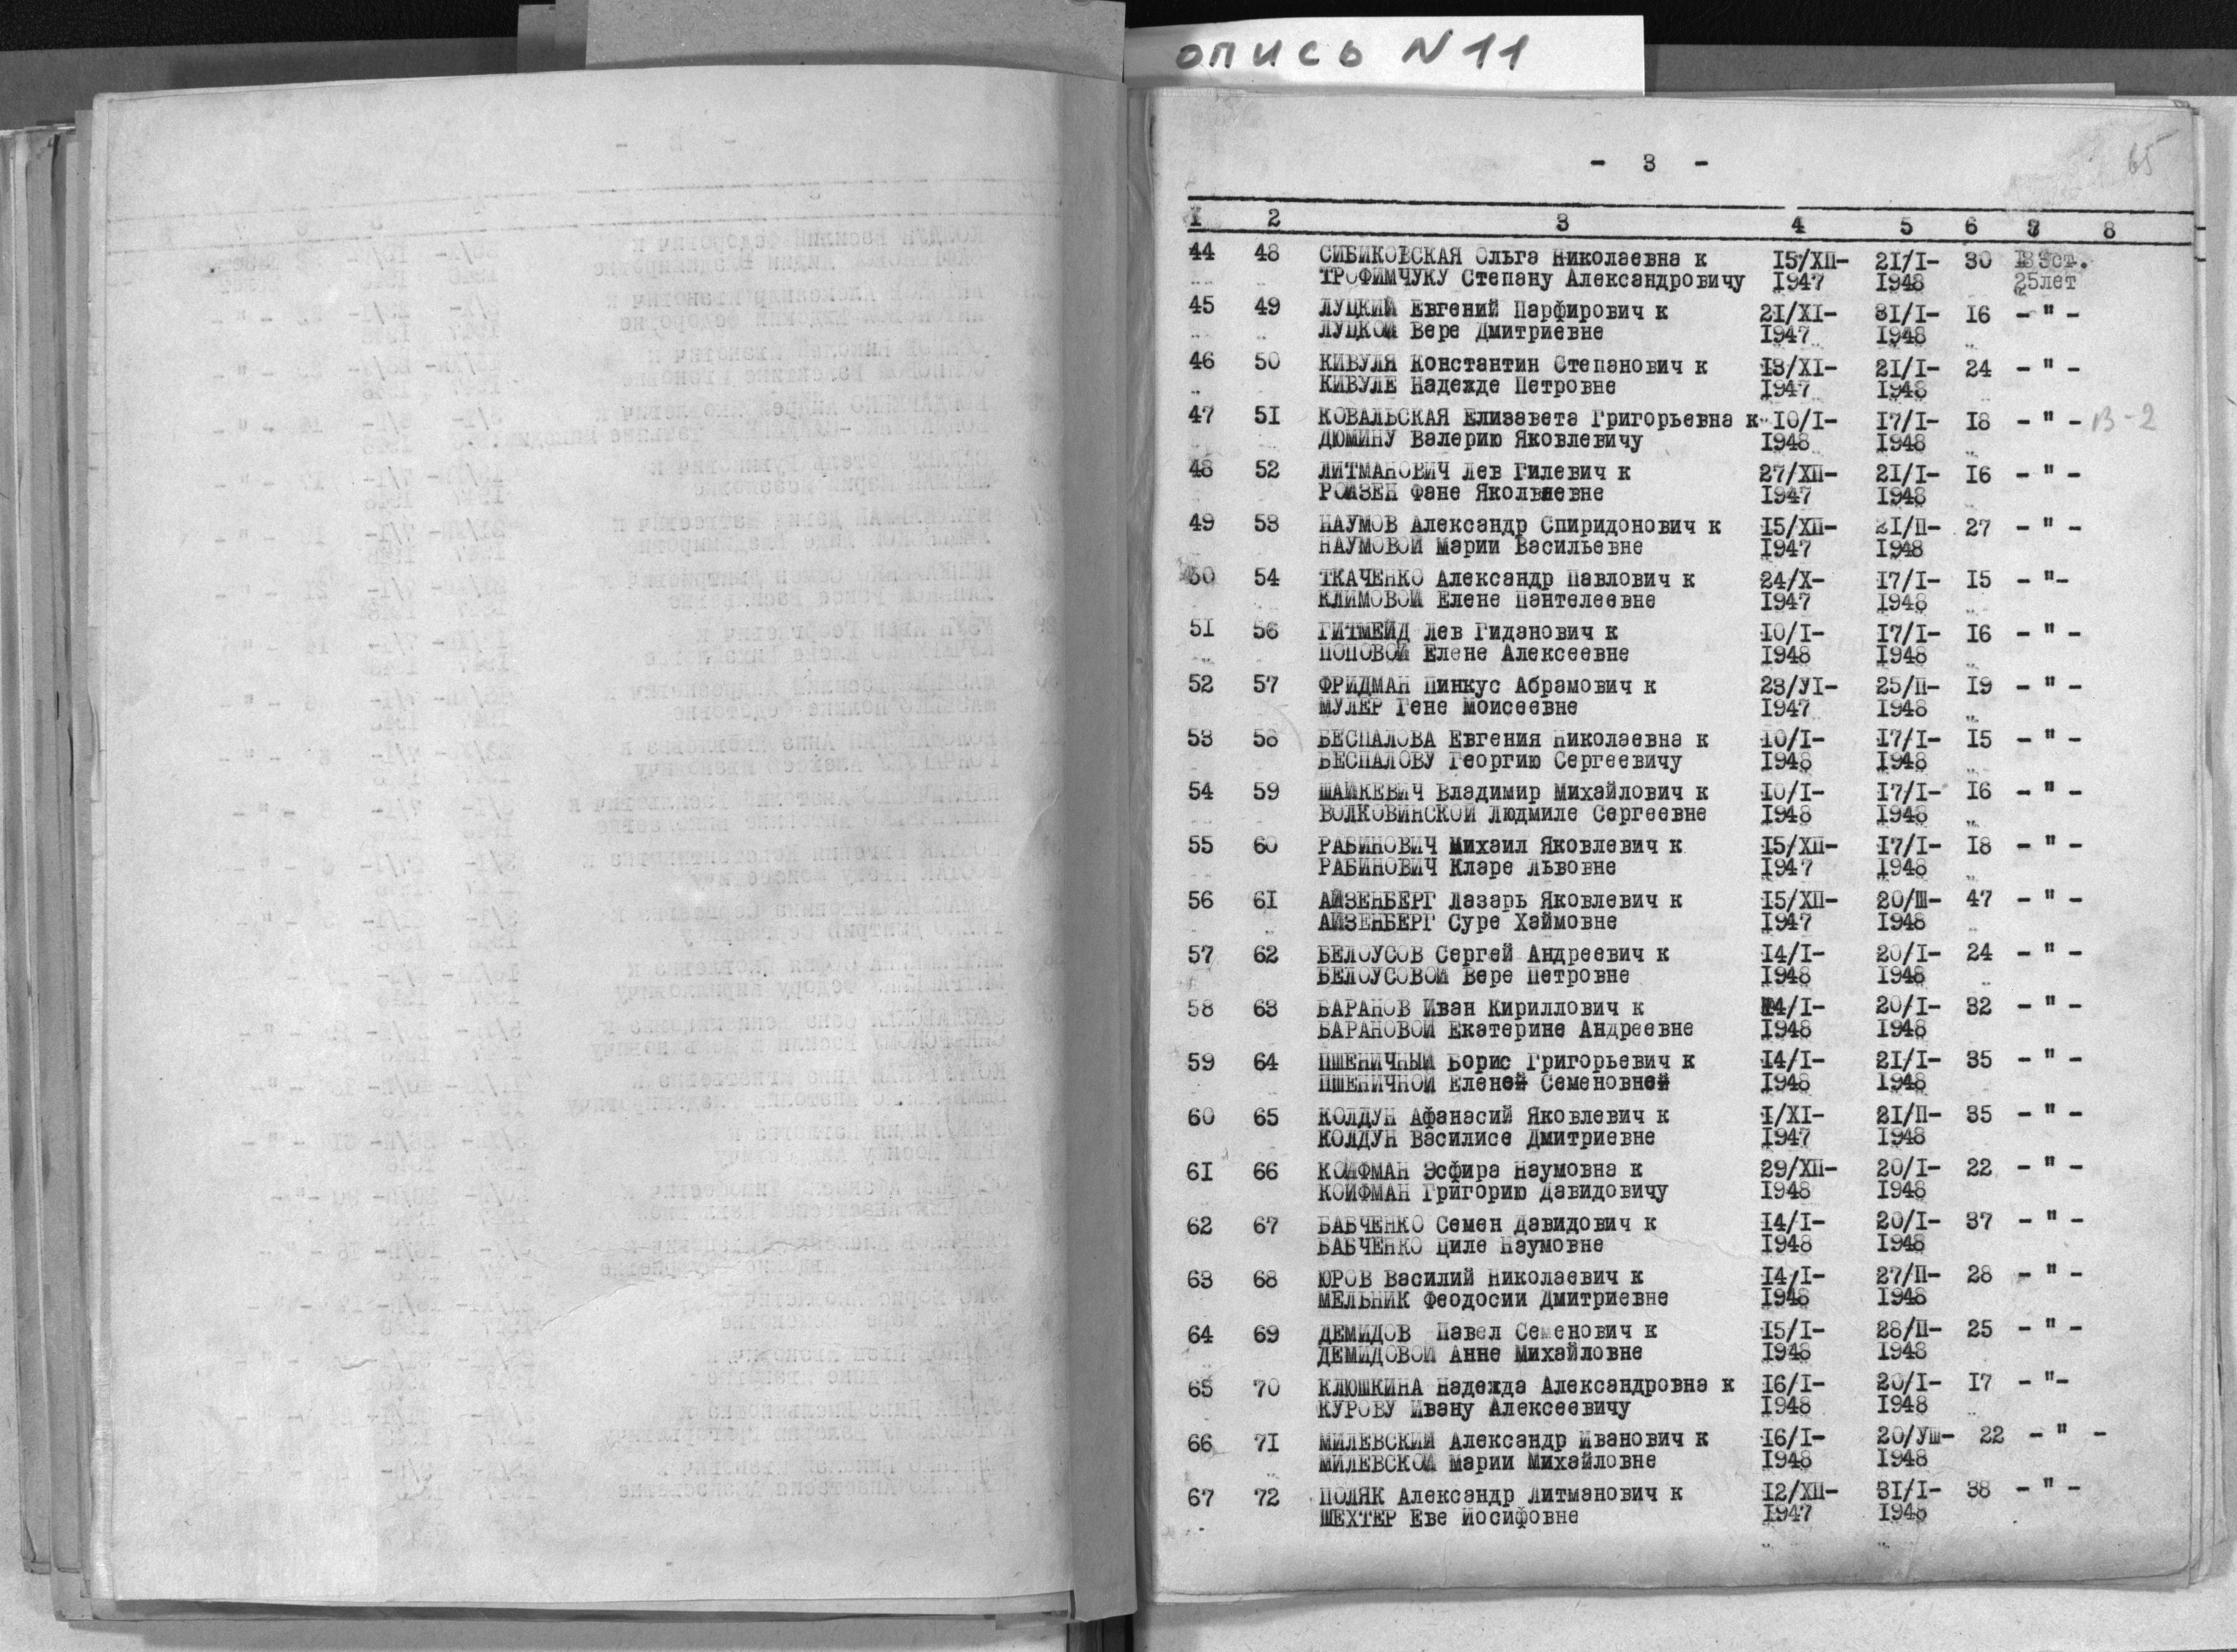 опись N 11
- 3 -
65
1 2 3 4 5 6 7 8
44 48 СИБИКОВСКАЯ Ольга Николаевна к I5/ХП- 2I/I- 30 ст.
ТРОФИМЧУКУ Степану Александровичу I947 I948 25лет
45 49 ЛУЦКИЙ Евгений Парфирович к 2I/XI- 3I/I- I6 - " -
ЛУЦКОЙ Вере Дмитриевне I947 I948
46 50 КИВУЛЯ Константин Степанович к I3/XI- 2I/I- 24 - " -
КИВУЛЕ Надежде Петровне I947 I948
47 5I КОВАЛЬСКАЯ Елизавета Григорьевна к I0/I- I7/I- I8 - " - В-2
ДЮМИНУ Валерию Яковлевичу I948 I948
48 52 ЛИТМАНОВИЧ Лев Гилевич к 27/ХП- 2I/I- I6 - " -
РОЙЗЕН Фане I947 I948
49 53 НАУМОВ Александр Спиридонович к I5/ХП- 2I/П- 27 - " -
НАУМОВОЙ Марии Васильевне I947 I948
50 54 ТКАЧЕНКО Александр Павлович к 24/X- I7/I- I5 - "-
КЛИМОВОЙ Елене Пантелеевне I947 I948
5I 56 ГИТМЕЙД Лев Гиданович к I0/I- I7/I- I6 - " -
ПОПОВОЙ Елене Алексеевне I948 I948
52 57 ФРИДМАН Пинкус Абрамович к 23/УI- 25/П- I9 - " -
МУЛЕР Гене Моисеевне I947 I948
53 58 БЕСПАЛОВА Евгения Николаевна к I0/I- I7/I- I5 - " -
БЕСПАЛОВУ Георгию Сергеевичу I948 I948
54 59 ШАЙКЕВИЧ Владимир Михайлович к I0/I- I7/I- I6 - " -
ВОЛКОВИНСКОЙ Людмиле Сергеевне I948 I948
55 60 РАБИНОВИЧ Михаил Яковлевич к I5/ХП- I7/I- I8 - " -
РАБИНОВИЧ Кларе Львовне I947 I948
56 6I АЙЗЕНБЕРГ Лазарь Яковлевич к I5/ХП- 20/Ш- 47 - " -
АЙЗЕНБЕРГ Суре Хаймовне I947 I948
57 62 БЕЛОУСОВ Сергей Андреевич к I4/I- 20/I- 24 - " -
БЕЛОУСОВОЙ Вере Петровне I948 I948
58 63 БАРАНОВ Иван Кириллович к I4/I- 20/I- 32 - " -
БАРАНОВОЙ Екатерине Андреевне I948 I948
59 64 ПШЕНИЧНЫЙ Борис Григорьевич к I4/I- 2I/I- 35 - " -
ПШЕНИЧНОЙ Еленей Семеновней I948 I948
60 65 КОЛДУН Афанасий Яковлевич к I/XI- 2I/П- 35 - " -
КОЛДУН Василисе Дмитриевне I947 I948
6I 66 КОЙФМАН Эсфира Наумовна к 29/ХП- 20/I- 22 - " -
КОЙФМАН Григорию Давидовичу I948 I948
62 67 БАБЧЕНКО Семен Давидович к I4/I- 20/I- 37 - " -
БАБЧЕНКО Циле Наумовне I948 I948
63 68 ЮРОВ Василий Николаевич к I4/I- 27/П- 28 - " -
МЕЛЬНИК Феодосии Дмитриевне I948 I948
64 69 ДЕМИДОВ Павел Семенович к I5/I- 28/П- 25 - " -
ДЕМИДОВОЙ Анне Михайловне I948 I948
65 70 КЛЮШКИНА Надежда Александровна к I6/I- 20/I- I7 - "-
КУРОВУ Ивану Алексеевичу I948 I948
66 7I МИЛЕВСКИЙ Александр Иванович к I6/I- 20/УШ- 22 - " -
МИЛЕВСКОЙ Марии Михайловне I948 I948
67 72 ПОЛЯК Александр Литманович к I2/ХП- 3I/I- 38 - " -
ШЕХТЕР Еве Иосифовне I947 I948